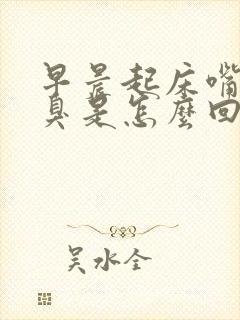 早晨起床嘴
臭是怎麼回
吴水全